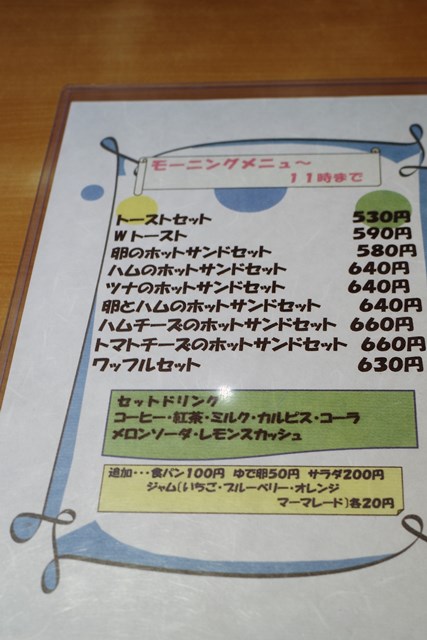 モーニングメニュー〜
11時まで
トーストセット 530円
Wトースト 590円
卵のホットサンドセット 580円
ハムのホットサンドセット 640円
ツナのホットサンドセット 640円
卵とハムのホットサンドセット 640円
ハムチーズのホットサンドセット 660円
トマトチーズのホットサンドセット 660円
ワッフルセット 630円
セットドリンク
コーヒー・紅茶・ミルク・カルピス・コーラ
メロンソーダ・レモンスカッシュ
追加・・・食パン100円 ゆで卵50円 サラダ200円
ジャム〔いちご・ブルーベリー・オレンジ
マーマレード〕各20円